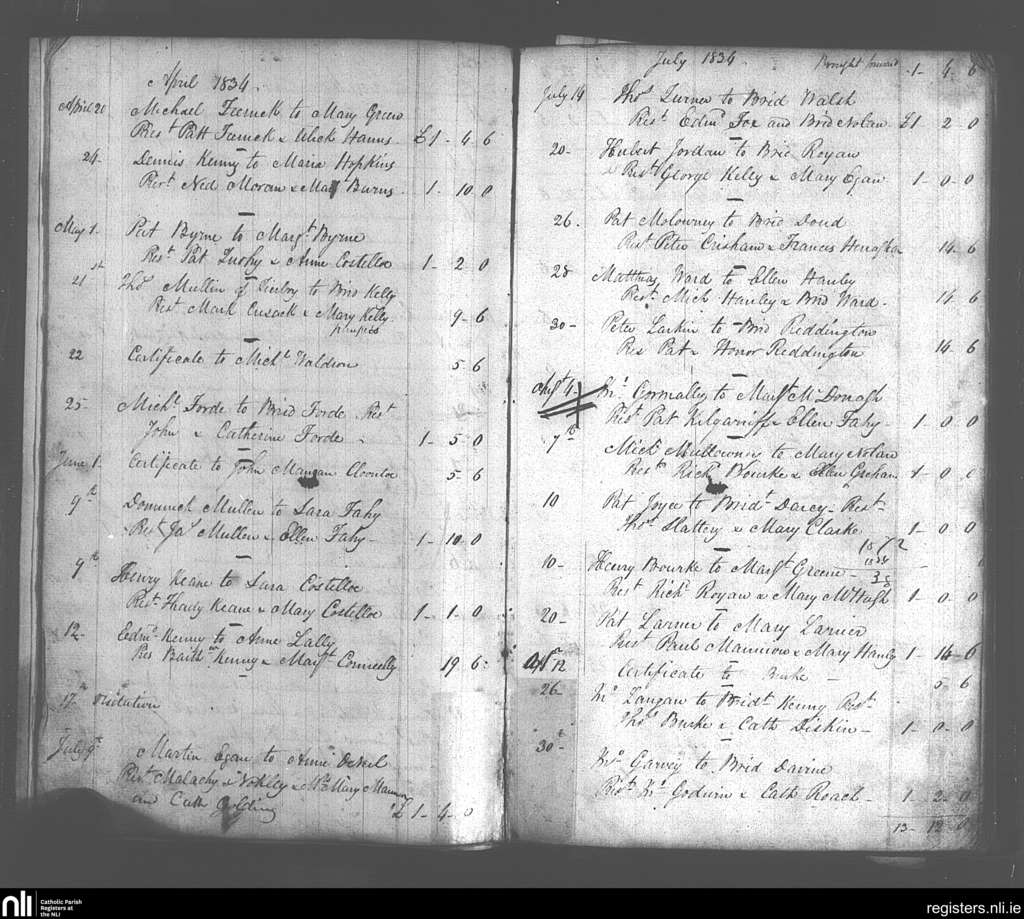 April 1834
April 20 Michael Turnek to Mary Green
Prest Patt Turnek & Alick Hanns £1 - 4 6
24 - Dennis Kenny to Maria Hopkins
Prest Ned Moran & Mary Burns - 1 - 10 0
May 1 - Pat Byrne to Margt Byrne
Prest Pat Tuohy & Anne Costelloe 1 - 2 0
21st Thos Mullen of to Brid Kelly
Prest Mark Cusack & Mary Kelly 9 - 6
22 Certificate to Michl Waldron 5 6
25 - Michl Forde to Brid Forde Prest
John & Catherine Forde - 1 - 5 0
June 1 - Certificate to John Mangan Cloonloo 5 6
9th Dominick Mullen to Sara Fahy
Prest Jas Mullen & Ellen Fahy - 1 - 10 0
9th Henry Keane to Sara Costelloe
Prest Thady Keane & Mary Costelloe 1 - 1 - 0
12 - Edmd Kenny to Anne Lally
Pres Kenny & Margt Conneelly 19 6
17th
July 9th Martin Egan to Anne
Prest Malachy & & Mrs Mary Mannion
and Cath £1 - 4 - 0
July 1834 Brought forward 1 - 4 6
July 14 Thos Turner to Brid Walsh
Prest Edmd Fox and Brid Nolan £1 2 0
20 - Hubert Jordan to Brid Royan
Prest George Kelly & Mary Egan 1 - 0 - 0
26 - Pat Molowney to Brid Doud
Prest Peter & Frances 14 - 6
28 Matthias Ward to Ellen Hanley
Prest Mich Hanley & Brid Ward - 14 - 6
30 - Peter Larkin to Brid Reddington
Pres Pat & Honor Reddington 14 6
Augt 4 - Jno Cormally to Margt McDonagh
Prest Pat Kilgarriff & Ellen Fahy - 1 - 0 0
7th Michl Muldowney to Mary Nolan
Prest Richd Bourke & Ellen 1 - 0 0
10 Pat Joyce to Bridt Darcy - Prest
Thos Slattery & Mary Clarke 1 - 0 0
1872
1834
38
10 - Henry Bourke to Margt Greene -
Prest Richd Royan & Mary McHugh 1 - 0 0
20 - Pat Larner to Mary Larner
Prest Paul Mannion & Mary Hanley 1 - 14 - 6
12 Certificate to Burke - 5 6
26 - Jno Langan to Bridt Kenny Prest
Thos Burke & Cath Diskin - 1 - 0 - 0
30th Jno Garvey to Brid Davine
Prest Jno Godwin & Cath Roach - 1 - 2 - 0
13 - 12 0
nli Catholic Parish
Registers at
the NLI
registers.nli.ie